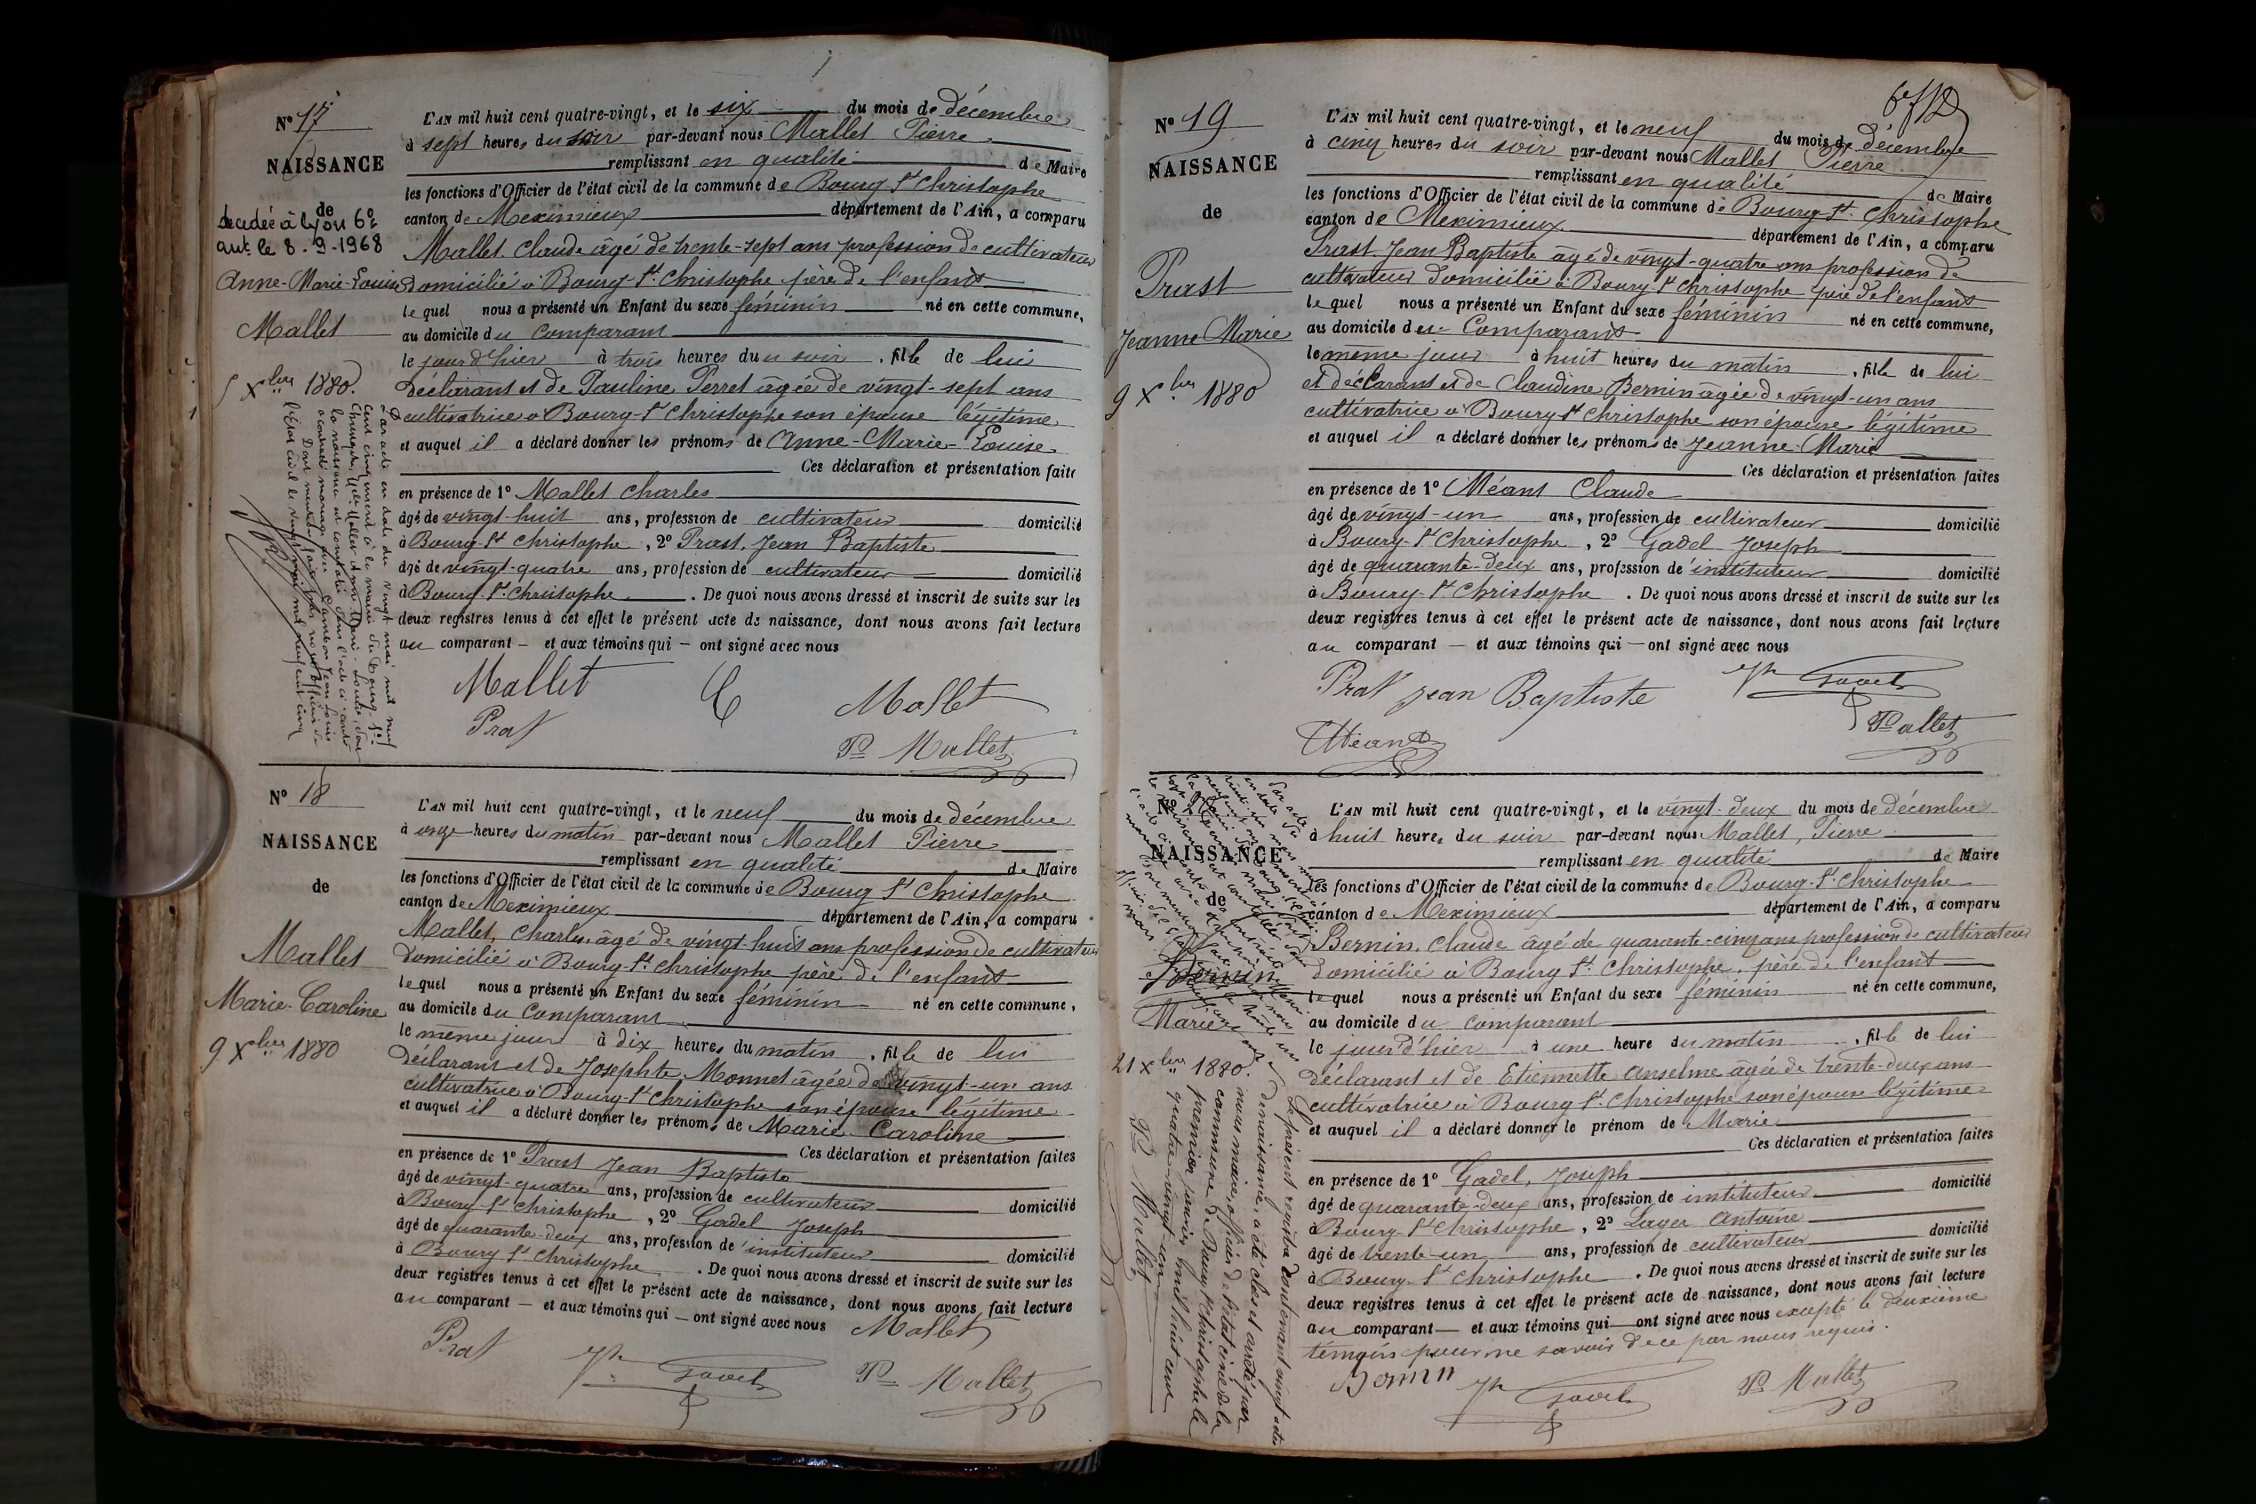 N° 17
NAISSANCE
de
decedée à Lyon 6e
aut. le 8.9-1968
Anne-Marie-Louise
Mallet
5 Xbre 1880.
Par acte en date du vingt mai mil neuf
cent cinq inscrit à la mairie du Bourg St
Christophe, Melle Mallet Anne Marie Louise, dont
la naissance est constatée dans l'acte ci-contre
a contracté mariage avec Jean Louis
Dont mention faite par nous officier de
l'Etat civil le vingt mai mil neuf cent cinq
L'AN mil huit cent quatre-vingt, et le six du mois de décembre
à sept heures du soir par-devant nous Mallet Pierre
remplissant en qualité de Maire
les fonctions d'Officier de l'état civil de la commune de Bourg St Christophe
canton de Meximieux département de l'Ain, a comparu
Mallet Claude âgé de trente-sept ans profession de cultivateur
domicilié à Bourg St Christophe père de l'enfant
lequel nous a présenté un Enfant du sexe féminin né en cette commune,
au domicile du comparant
le jour d'hier à trois heures du soir, fille de lui
déclarant et de Pauline Perret âgée de vingt-sept ans
cultivatrice à Bourg-St Christophe son épouse légitime
et auquel il a déclaré donner les prénoms de Anne-Marie-Louise
Ces déclaration et présentation faites
en présence de 1° Mallet Charles
âgé de vingt-huit ans, profession de cultivateur domicilié
à Bourg-St Christophe, 2° Prast, Jean Baptiste
âgé de vingt-quatre ans, profession de cultivateur domicilié
à Bourg-St Christophe. De quoi nous avons dressé et inscrit de suite sur les
deux registres tenus à cet effet le présent acte de naissance, dont nous avons fait lecture
au comparant — et aux témoins qui — ont signé avec nous
Mallet C Mallet
Prat
P. Mallet
N° 18
NAISSANCE
de
Mallet
Marie-Caroline
9 Xbre 1880
L'AN mil huit cent quatre-vingt, et le neuf du mois de décembre
à onze heures du matin par-devant nous Mallet Pierre
remplissant en qualité de Maire
les fonctions d'Officier de l'état civil de la commune de Bourg St Christophe
canton de Meximieux département de l'Ain, a comparu
Mallet, Charles âgé de vingt-huit ans profession de cultivateur
domicilié à Bourg-St Christophe père de l'enfant
lequel nous a présenté un Enfant du sexe féminin né en cette commune,
au domicile du comparant
le même jour à dix heures du matin, fille de lui
déclarant et de Josephte Monnet âgée de vingt-un ans
cultivatrice à Bourg-St Christophe son épouse légitime
et auquel il a déclaré donner les prénoms de Marie-Caroline
Ces déclaration et présentation faites
en présence de 1° Prast Jean Baptiste
âgé de vingt-quatre ans, profession de cultivateur domicilié
à Bourg St Christophe, 2° Gadel Joseph
âgé de quarante-deux ans, profession de instituteur domicilié
à Bourg St Christophe. De quoi nous avons dressé et inscrit de suite sur les
deux registres tenus à cet effet le présent acte de naissance, dont nous avons fait lecture
au comparant — et aux témoins qui — ont signé avec nous Mallet
Prat Jh Gadel P. Mallet
N° 19
NAISSANCE
de
Prast
Jeanne Marie
9 Xbre 1880
L'AN mil huit cent quatre-vingt, et le neuf du mois de décembre
à cinq heures du soir par-devant nous Mallet Pierre
remplissant en qualité de Maire
les fonctions d'Officier de l'état civil de la commune de Bourg St Christophe
canton de Meximieux département de l'Ain, a comparu
Prast Jean Baptiste âgé de vingt-quatre ans profession de
cultivateur domicilié à Bourg-St Christophe père de l'enfant
lequel nous a présenté un Enfant du sexe féminin né en cette commune,
au domicile du Comparant
le même jour à huit heures du matin, fille de lui
et déclarant et de Claudine Bernin âgée de vingt-un ans
cultivatrice à Bourg St Christophe son épouse légitime
et auquel il a déclaré donner les prénoms de Jeanne-Marie
Ces déclaration et présentation faites
en présence de 1° Méant Claude
âgé de vingt-un ans, profession de cultivateur domicilié
à Bourg-St Christophe, 2° Gadel Joseph
âgé de quarante-deux ans, profession de instituteur domicilié
à Bourg-St Christophe. De quoi nous avons dressé et inscrit de suite sur les
deux registres tenus à cet effet le présent acte de naissance, dont nous avons fait lecture
au comparant — et aux témoins qui — ont signé avec nous
Prat jean Baptiste Jh Gadel
Méant P. Mallet
N°
NAISSANCE
de
Bernin
Marie
21 Xbre 1880.
Le présent registre contenant vingt actes
de naissance, a été clos et arrêté par
nous maire, officier de l'état civil de la
commune de Bourg St Christophe le
premier janvier mil huit cent
quatre-vingt-un
P. Mallet
L'AN mil huit cent quatre-vingt, et le vingt-deux du mois de décembre
à huit heures du soir par-devant nous Mallet, Pierre
remplissant en qualité de Maire
les fonctions d'Officier de l'état civil de la commune de Bourg-St Christophe
canton de Meximieux département de l'Ain, a comparu
Bernin, Claude âgé de quarante-cinq ans profession de cultivateur
domicilié à Bourg St Christophe, père de l'enfant
lequel nous a présenté un Enfant du sexe féminin né en cette commune,
au domicile du comparant
le jour d'hier à une heure du matin, fille de lui
déclarant et de Etiennette Anselme âgée de trente-deux ans
cultivatrice à Bourg St Christophe son épouse légitime
et auquel il a déclaré donner le prénom de Marie
Ces déclaration et présentation faites
en présence de 1° Gadel, Joseph
âgé de quarante-deux ans, profession de instituteur domicilié
à Bourg St Christophe, 2° Layer Antoine
âgé de trente-un ans, profession de cultivateur domicilié
à Bourg-St Christophe. De quoi nous avons dressé et inscrit de suite sur les
deux registres tenus à cet effet le présent acte de naissance, dont nous avons fait lecture
au comparant — et aux témoins qui — ont signé avec nous excepté le deuxième
témoin pour ne savoir de ce par nous requis.
Bernin Jh Gadel P. Mallet